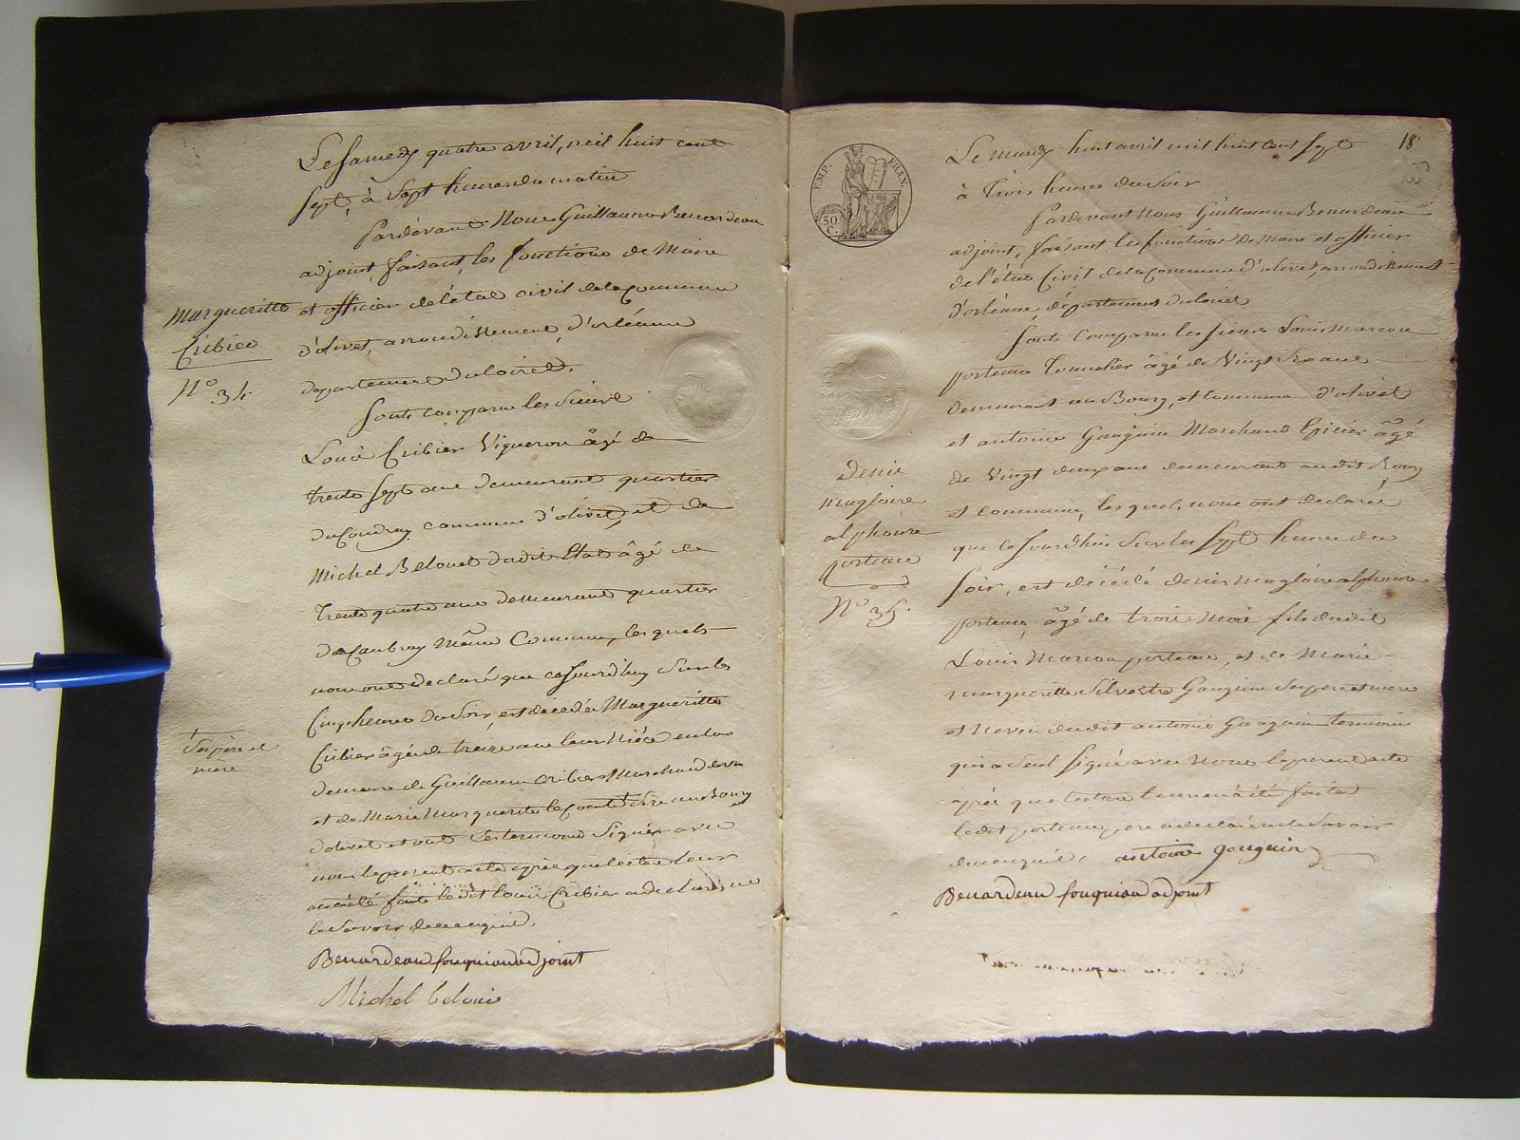 Le Samedy quatre avril, mil huit cent
Sept, à Sept heures du matin
Pardevant Nous Guillaume Benardeau
adjoint, faisant les fonctions de Maire
et officier de l'état civil de la Commune
d'olivet, arrondissement d'orléans
département du loiret,
Sont comparu les Sieurs
Louis Cribier Vigneron âgé de
trente Sept ans demeurant quartier
du Coudray commune d'olivet, et de
Michel Belouet dudit Etat âgé de
trente quatre ans demeurant quartier
de Même Commune, les quels
nous ont declaré que cejourdhuy Sur les
Cinq heures du Soir, est decedée Margueritte
Cribier âgée de treize ans leur Nièce en la
demeure de Guillaume Cribier Marchand
et de Marie Marguerite au Bourg
d'olivet et ont Les temoins Signé avec
nous le present acte après que lecture leur
a été faite le dit Louis Cribier a declaré ne
le Savoir de ce enquis.
Benardeau fouquiau adjoint
Michel belouis
Margueritte
Cribier
N° 34
Ses père et
mère
EMP. FRAN.
50
C.
18
Le huit avril mil huit cent Sept
à Trois heures du Soir
Pardevant Nous Guillaume Benardeau
adjoint, faisant les fonctions de Maire et officier
de l'état Civil de la Commune d'olivet, arrondissement
d'orléans, département du loiret
Sont comparu les Sieurs Louis Marcou
porteau Tonnelier âgé de Vingt Six ans
demeurant au Bourg, et Commune d'olivet
et antoine Gouguin Marchand Epicier âgé
de Vingt deux ans demeurant au dit Bourg
et commune, les quels nous ont declaré
que cejourdhui Sur les Sept heures du
Soir, est décédé denis alphonse
porteau, âgé de trois Mois fils dudit
Louis Marcou porteau, et de Marie
margueritte Silvestre Gouguin Ses père et mere
et Neveu dudit antoine Gouguin temoin
qui a Seul Signé avec Nous le present acte
après que lecture leur en a été faite
ledit porteau, ayant declaré ne le Savoir
de ce enquis. antoine gouguin
Benardeau fouquiau adjoint
denis
alphonse
porteau
N° 35.